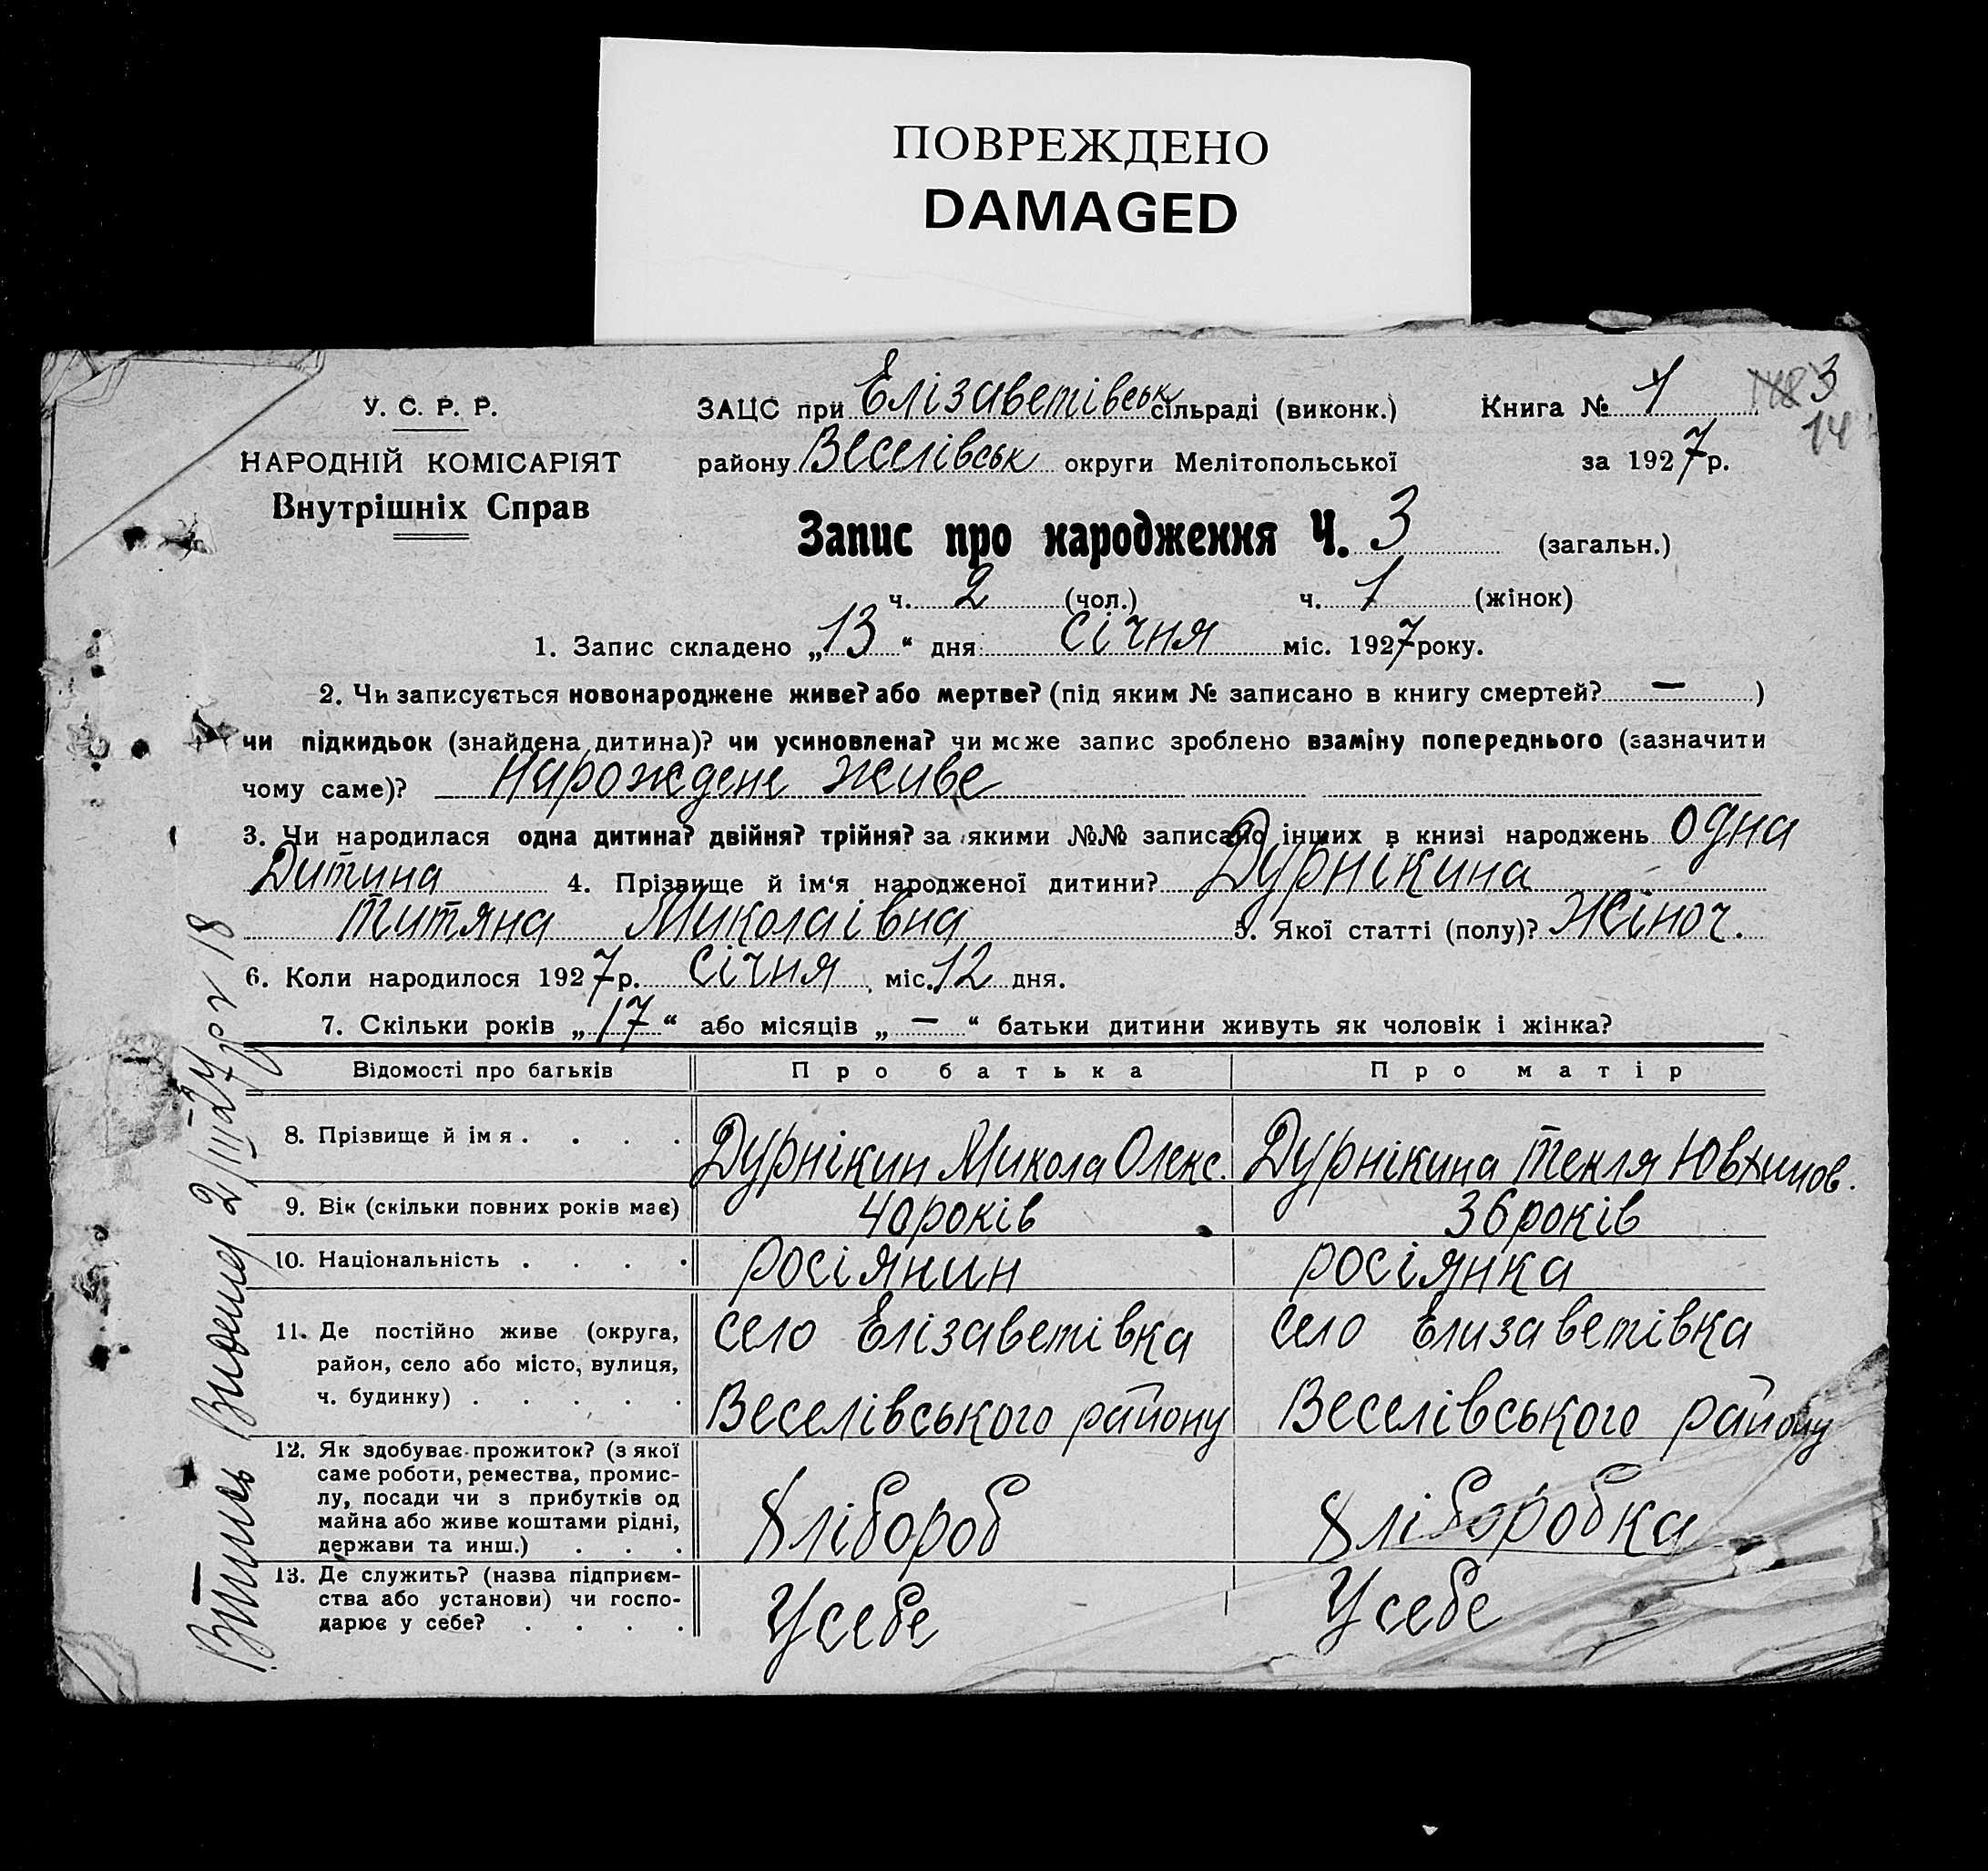 ПОВРЕЖДЕНО
DAMAGED
У. С. Р. Р.
НАРОДНІЙ КОМІСАРІЯТ
Внутрішніх Справ
ЗАЦС при Елізаветівськ сільраді (виконк.) Книга № 1 3
14
району Веселівськ округи Мелітопольської за 1927 р.
Запис про народження Ч. 3 (загальн.)
ч. 2 (чол.) ч. 1 (жінок)
1. Запис складено „13“ дня січня міс. 1927 року.
2. Чи записується новонароджене живе? або мертве? (під яким № записано в книгу смертей? — )
чи підкидьок (знайдена дитина)? чи усиновлена? чи може запис зроблено взаміну попереднього (зазначити
чому саме)? Нарождене живе
3. Чи народилася одна дитина? двійня? трійня? за якими №№ записано інших в книзі народжень одна
Дитина 4. Прізвище й ім‘я народженої дитини? Дурнікина
Титяна Миколаівна 5. Якої статті (полу)? Жіноч.
6. Коли народилося 1927 р. січня міс. 12 дня.
7. Скільки років „17“ або місяців „—“ батьки дитини живуть як чоловік і жінка?
Відомості про батьків Про батька Про матір
8. Прізвище й імя . . . . Дурнікин Микола Олекс. Дурнікина Текля Ювхимов.
9. Вік (скільки повних років має) 40 років 36 років
10. Національність . . . . росіянин росіянка
11. Де постійно живе (округа, село Елізаветівка село Елизаветівка
район, село або місто, вулиця,
ч. будинку) . . . . . Веселівського району Веселівського району
12. Як здобуває прожиток? (з якої
саме роботи, ремества, промис-
лу, посади чи з прибутків од Хлібороб Хлiборобка
майна або живе коштами рідні,
держави та инш.) . . .
13. Де служить? (назва підприєм-
ства або установи) чи госпо- У себе У себе
дарює у себе? . . . .
Витись Видена 2/III 27 18